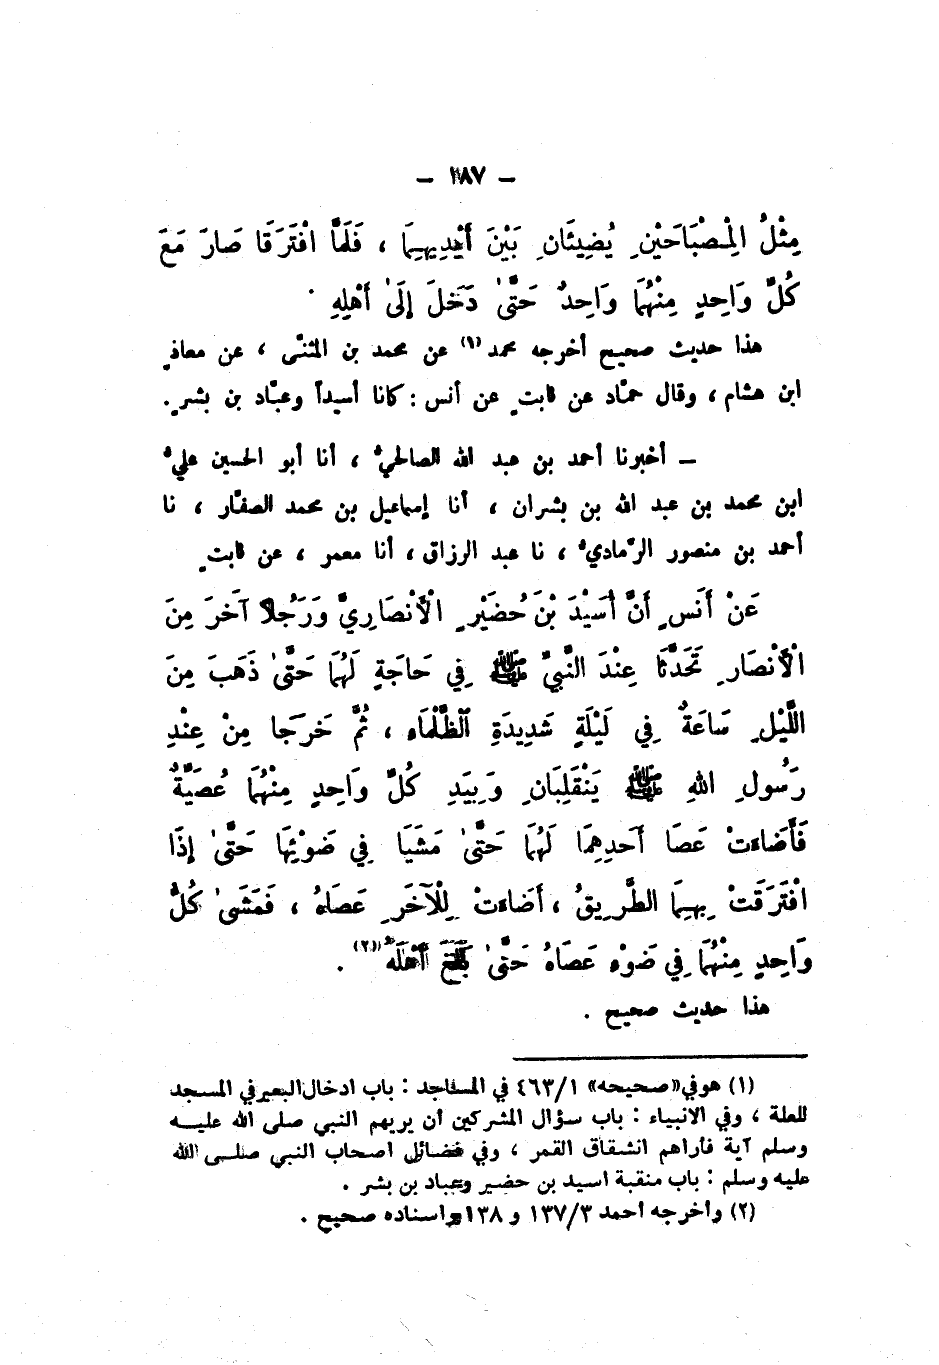 – ١٨٧ –
مِثْلُ الْمِصْبَاحَيْنِ يُضِيئَانِ بَيْنَ أَيْدِيهِمَا ، فَلَمَّا افْتَرَقَا صَارَ مَعَ
كُلِّ وَاحِدٍ مِنْهُمَا وَاحِدٌ حَتَّىٰ دَخَلَ إِلَىٰ أَهْلِهِ .
هذا حديث صحيح أخرجه محمد (١) عن محمد بن المثنَّى ، عن معاذِ
ابن هشام ، وقال حمَّاد عن ثابتٍ عن أنس : كانا أسيداً وعبَّاد بن بشرٍ .
– أخبرنا أحمد بن عبد الله الصالحيُّ ، أنا أبو الحسين عليُّ
ابن محمد بن عبد الله بن بشران ، أنا إسماعيل بن محمد الصفَّار ، نا
أحمد بن منصور الرَّماديُّ ، نا عبد الرزاق ، أنا معمر ، عن ثابتٍ
عَنْ أَنَسٍ أَنَّ أُسَيْدَ بْنَ حُضَيْرٍ الْأَنْصَارِيَّ وَرَجُلًا آخَرَ مِنَ
الْأَنْصَارِ تَحَدَّثَا عِنْدَ النَّبِيِّ ﷺ فِي حَاجَةٍ لَهُمَا حَتَّىٰ ذَهَبَ مِنَ
اللَّيْلِ سَاعَةٌ فِي لَيْلَةٍ شَدِيدَةِ الظَّلْمَاءِ ، ثُمَّ خَرَجَا مِنْ عِنْدِ
رَسُولِ اللهِ ﷺ يَنْقَلِبَانِ وَبِيَدِ كُلِّ وَاحِدٍ مِنْهُمَا عُصَيَّةٌ
فَأَضَاءَتْ عَصَا أَحَدِهِمَا لَهُمَا حَتَّىٰ مَشَيَا فِي ضَوْئِهَا حَتَّىٰ إِذَا
افْتَرَقَتْ بِهِمَا الطَّرِيقُ ، أَضَاءَتْ لِلْآخَرِ عَصَاهُ ، فَمَشَىٰ كُلُّ
وَاحِدٍ مِنْهُمَا فِي ضَوْءِ عَصَاهُ حَتَّىٰ بَلَغَ أَهْلَهُ (٢) .
هذا حديث صحيح .
(١) هو في «صحيحه» ٤٦٣/١ في المساجد : باب ادخال البعير في المسجد
للعلة ، وفي الانبياء : باب سؤال المشركين أن يريهم النبي صلى الله عليه
وسلم آية فأراهم انشقاق القمر ، وفي فضائل اصحاب النبي صلى الله
عليه وسلم : باب منقبة اسيد بن حضير وعباد بن بشر .
(٢) وأخرجه احمد ١٣٧/٣ و ١٣٨ واسناده صحيح .